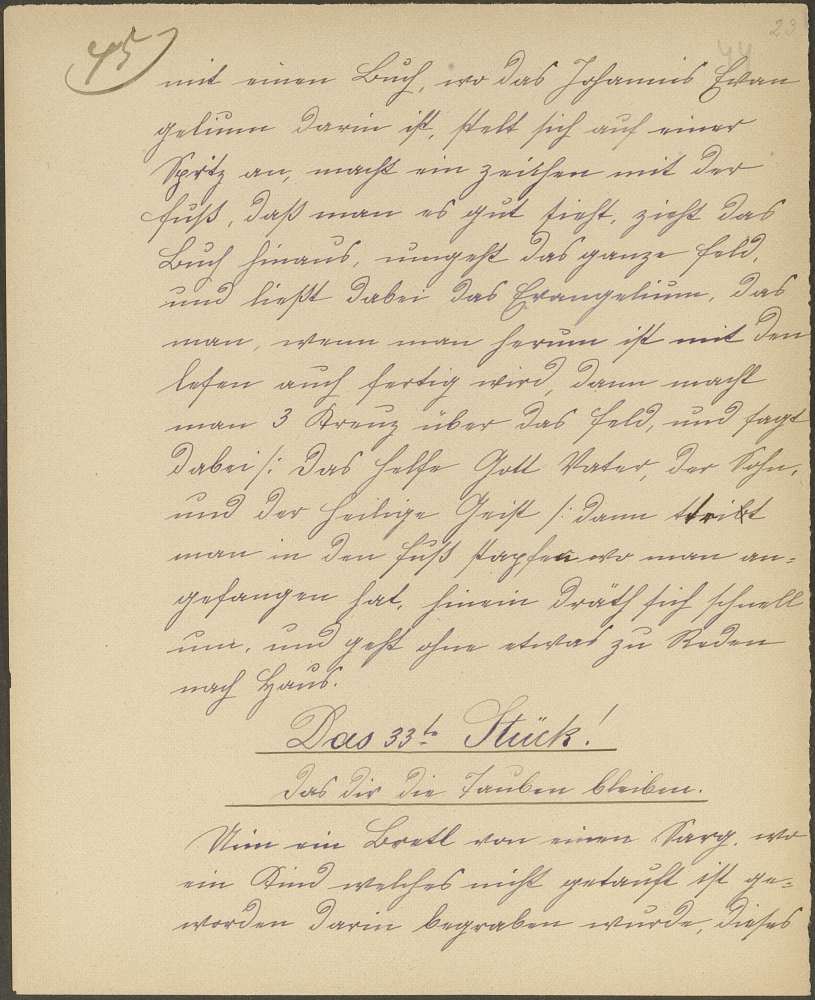 45
23
44
mit einen Buch, wo das Johannis Evan
gelium darin ist, stelt sich auf einer
Spitz an, macht ein zeichen mit der
fuß, daß man es gut sieht, zieht das
Buch hinaus, umgeht das ganze feld,
und ließt dabei das Evangelium, das
man, wenn man herum ist mit den
lesen auch fertig wird, dann macht
man 3 Kreuz über das feld, und sagt
dabei /: das helfe Gott Vater, der Sohn,
und der heilige Geist /: dann tribt
man in den fuß stapfen wo man an=
gefangen hat, hinein dräth sich schnell
um, und geht ohne etwas zu Reden
nach Haus.
Das 33te Stück!
das dir die Tauben bleiben.
Nim ein Bretl von einen Sarg, wo
ein Kind welches nicht getauft ist ge=
worden darin begraben wurde, dieses